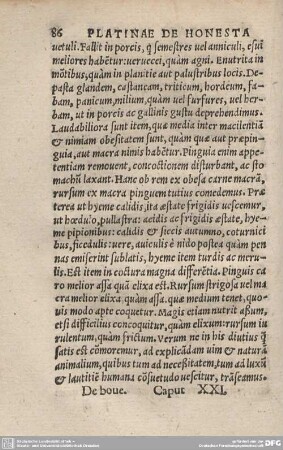 86 PLATINAE DE HONESTA
uetuli. Fallit in porcis, q̃ semestres uel anniculi, esui
meliores habẽtur: ueruecci, quàm agni. Enutrita in
mõtibus, quàm in planitie aut palustribus locis. De-
pasta glandem, castaneam, triticum, hordeum, fa-
bam, panicum, milium, quàm uel furfures, uel her-
bam, ut in porcis ac gallinis gustu deprehendimus.
Laudabiliora sunt item, quæ media inter macilentiã
& nimiam obesitatem sunt, quàm quæ aut præpin-
guia, aut macra nimis habẽtur. Pinguia enim appe-
tentiam remouent, concoctionem disturbant, ac sto
machũ laxant. Hanc ob rem ex obesa carne macrã,
rursum ex macra pinguem tutius comedemus. Præ
terea ut hyeme calidis, ita æstate frigidis uescemur,
ut hœdulo, pullastra: acidis ac frigidis æstate, hye-
me pipionibus: calidis & siccis autumno, coturnici
bus, ficedulis: uere, auiculis è nido postea quàm pen
nas emiserint sublatis, hyeme item turdis ac meru-
lis. Est item in coctura magna differẽtia. Pinguis ca
ro melior assa quã elixa est. Rursum strigosa uel ma
cra melior elixa quàm assa. quæ medium tenet, quo-
uis modo apte coquetur. Magis etiam nutrit assum,
etsi difficilius concoquitur, quàm elixum: rursum iu
rulentum, quàm frictum. Verum ne in his diutius q̃
satis est cõmoremur, ad explicãdam uim & naturã
animalium, quibus tum ad necessitatem, tum ad luxũ
& lautitiẽ humana cõsuetudo uescitur, trãseamus.
De boue. Caput XXI.